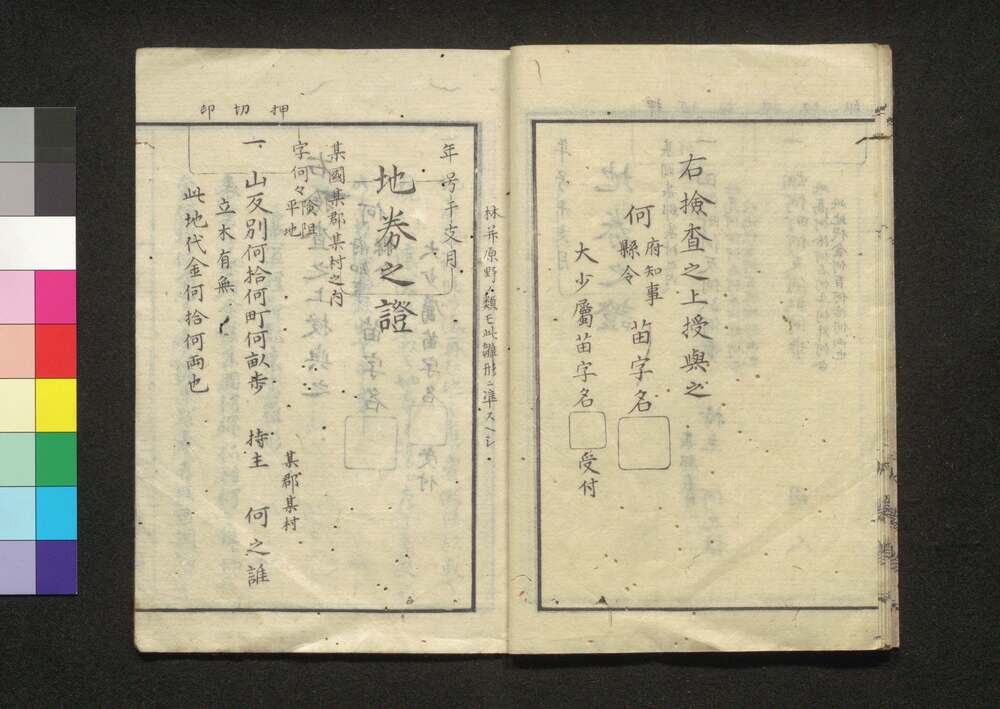 右撿査之上授與之
何
府知事
縣令
苗字名
大少屬苗字名
受付
林并原野ノ類モ此雛形ニ準スヘシ
押切印
年号干支月
地券之證
某國某郡某村之内
字何々
険阻
平地
某郡某村
一
山反別何拾何町何畝歩
持主
何之誰
立木有無
此地代金何拾何両也